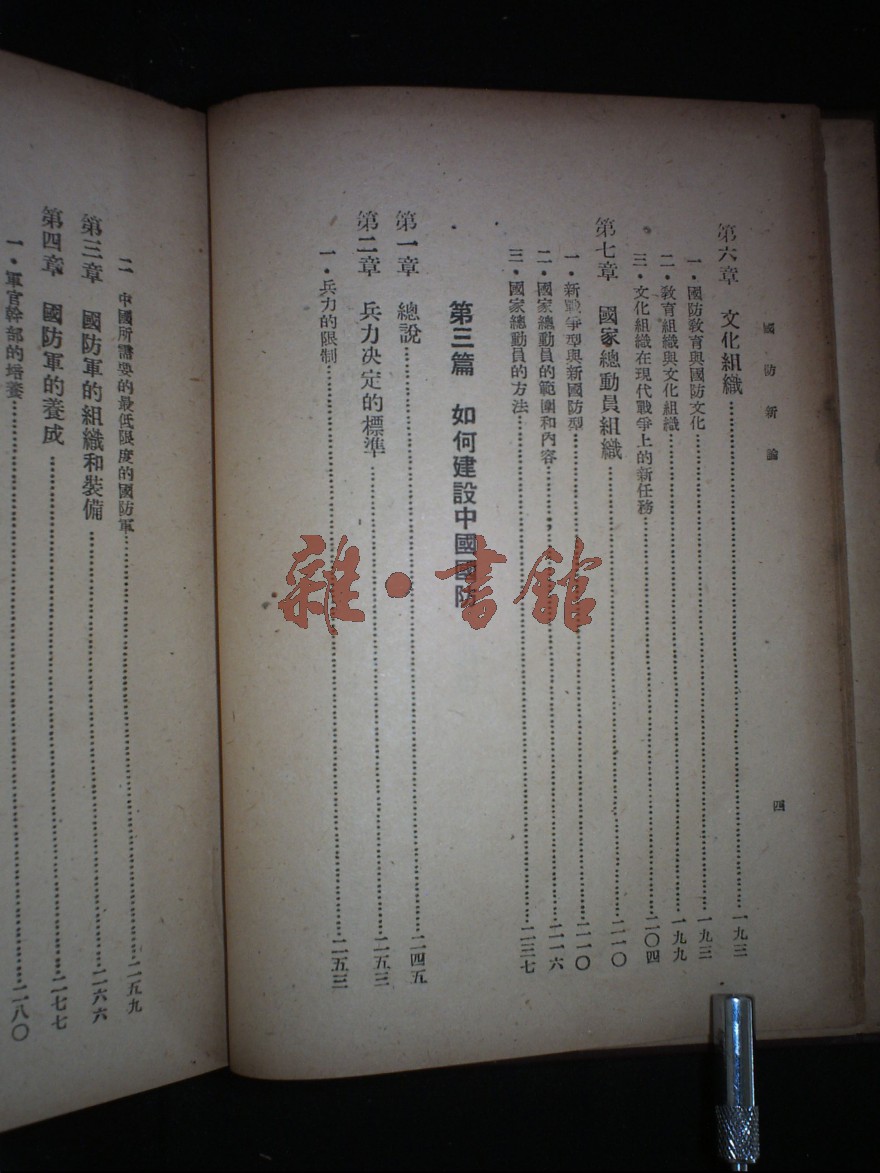 國防新論
四
第六章　文化組織……一九三
一·國防教育與國防文化……一九三
二·教育組織與文化組織……一九九
三·文化組織在現代戰爭上的新任務……二〇四
第七章　國家總動員組織……二一〇
一·新戰爭型與新國防型……二一〇
二·國家總動員的範圍和內容……二一六
三·國家總動員的方法……二三七
第三篇　如何建設中國國防
第一章　總說……二四五
第二章　兵力决定的標準……二五三
一·兵力的限制……二五三
二　中國所需要的最低限度的國防軍……二五九
第三章　國防軍的組織和裝備……二六六
第四章　國防軍的養成……二七七
一·軍官幹部的培養……二八〇
雜·書館